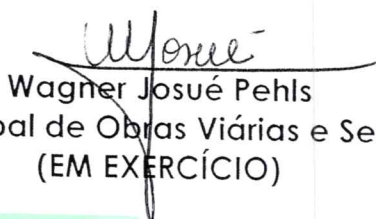 Wagner Josué Pehls
pal de Obras Viárias e Se
(EM EXERCÍCIO)